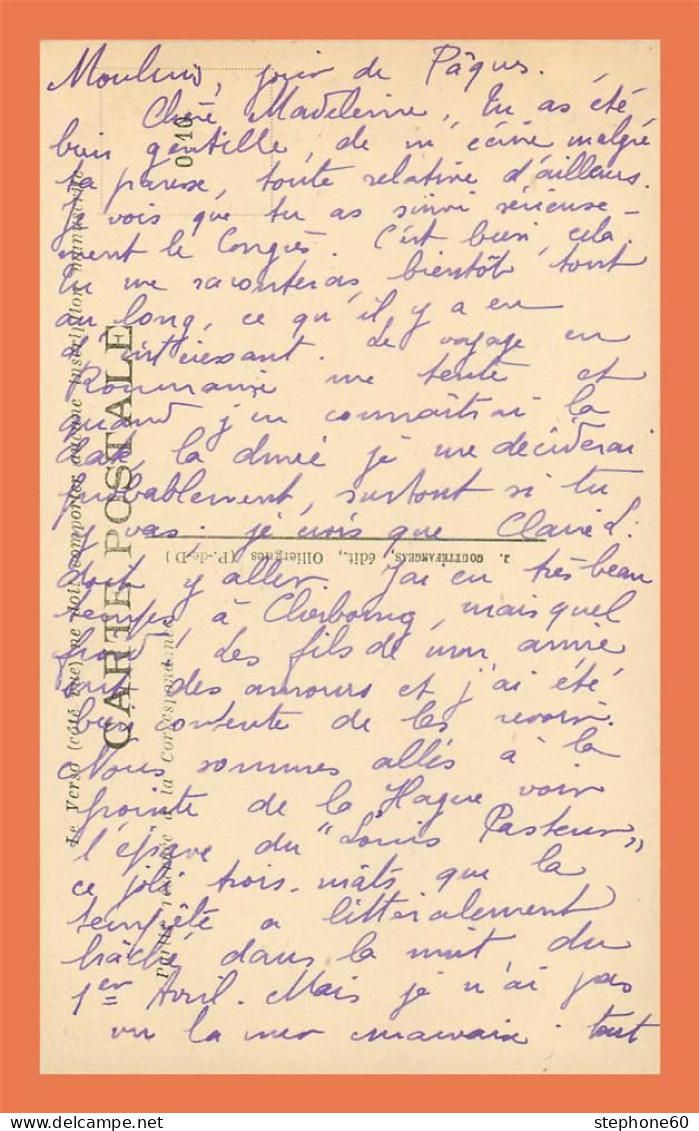 Moulins, jour de Pâques.
Chère Madeleine, Tu as été
bien gentille, de m'écrire malgré
ta paresse, toute relative d'ailleurs.
Je vois que tu as suivi sérieuse-
ment le Congrès. C'est bien, cela.
Tu me raconteras, bientôt, tout
au long, ce qu'il y a eu
d'intéressant. Le voyage en
Roumanie me tente et
quand j'en connaîtrai la
date, la durée je me déciderai
probablement, surtout si tu
y vas. Je crois que Claire L.
doit y aller. J'ai eu très beau
temps à Cherbourg, mais quel
froid! Les fils de mon amie
sont des amours et j'ai été
bien contente de les revoir.
Nous sommes allés à la
pointe de la Hague voir
l'épave du "Louis Pasteur"
ce joli trois-mâts que la
tempête a littéralement
haché dans la nuit du
1er Avril. Mais je n'ai pas
vu la mer mauvaise. tout
Le Verso (côté vue) ne doit comporter aucune inscription manuscrite
CARTE POSTALE
Partie réservée à la Correspondance
0.10
J. GOUTTEFANGEAS, édit., Olliergues (P.-de-D)
stephone60